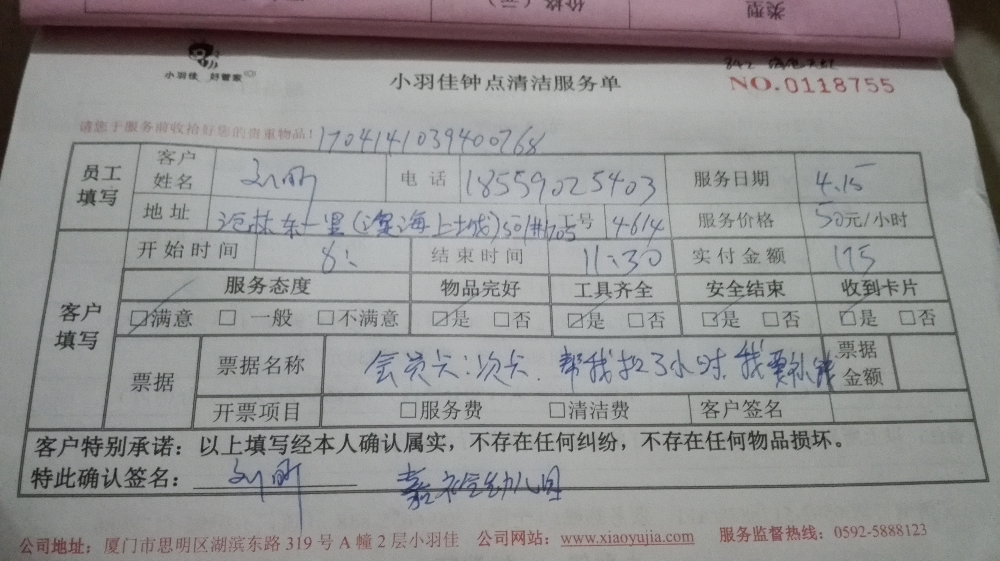 价格（元） 类型
小羽佳 好管家
小羽佳钟点清洁服务单
NO.0118755
请您于服务前收拾好您的贵重物品！
1704141039400768
员工填写 客户姓名 电话 18559025403 服务日期 4.15
地址 东一里(海上城)501#1705 工号 4614 服务价格 50元/小时
客户填写 开始时间 8: 结束时间 11:30 实付金额 175
服务态度 物品完好 工具齐全 安全结束 收到卡片
☑满意 □一般 □不满意 ☑是 □否 ☑是 □否 ☑是 □否 ☑是 □否
票据 票据名称 会员卡:次卡. 帮我扣3小时. 我要补 票据金额
开票项目 □服务费 □清洁费 客户签名
客户特别承诺：以上填写经本人确认属实，不存在任何纠纷，不存在任何物品损坏。
特此确认签名： 幼儿园
公司地址：厦门市思明区湖滨东路319号A幢2层小羽佳 公司网站：www.xiaoyujia.com 服务监督热线：0592-5888123